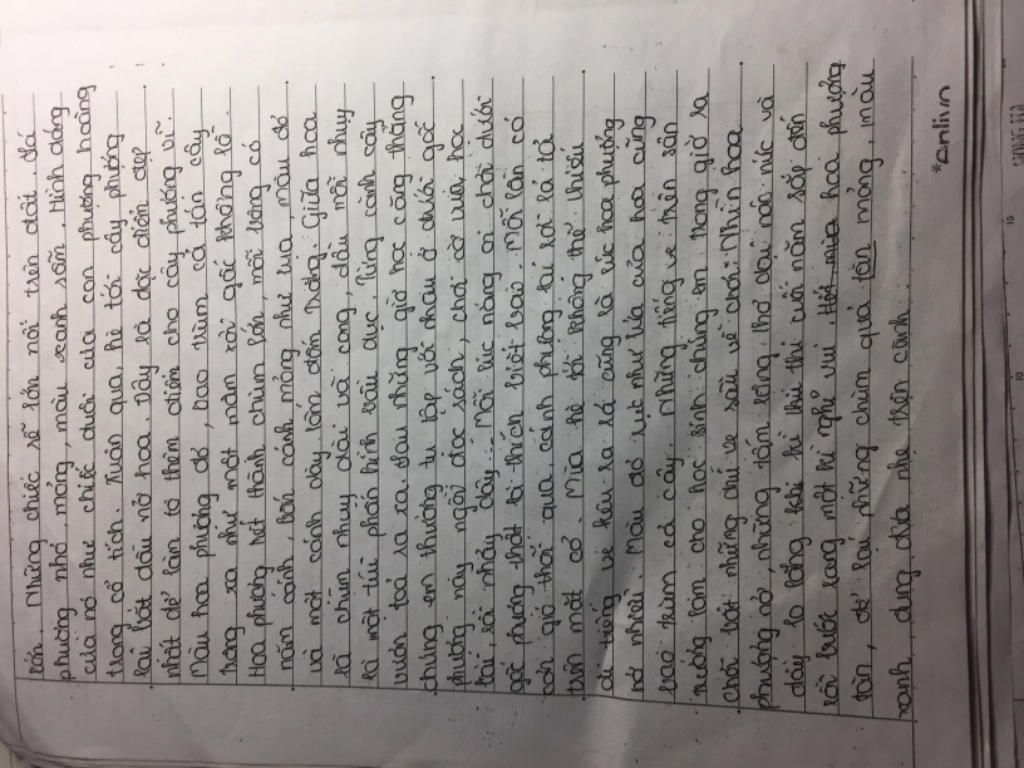 lớn. Những chiếc rễ lớn nổi trên đất. Lá
phượng nhỏ, mỏng, màu xanh sẫm. Hình dáng
của nó như chiếc đuôi của con phượng hoàng
trong cổ tích. Xuân qua, hè tới cây phượng
lại bắt đầu nở hoa. Đây là đặc điểm đẹp
nhất để làm tô thêm điểm cho cây phượng vĩ.
Màu hoa phượng đỏ, bao trùm cả tán cây
trông xa như một mâm xôi gấc khổng lồ.
Hoa phượng kết thành chùm lớn, mỗi bông có
năm cánh, bốn cánh mỏng như lụa, màu đỏ
và một cánh dày lốm đốm trắng. Giữa hoa
là chùm nhụy dài và cong, đầu mỗi nhụy
là một túi phấn hình bầu dục. Từng cành cây
vươn toả ra xa. Sau những giờ học căng thẳng
chúng em thường tụ tập với nhau ở dưới gốc
phượng này ngồi đọc sách, chơi cờ vua hay
tôi, là nhảy dây. Mỗi lúc nắng ai chơi dưới
gốc phượng thật là thích biết bao. Mỗi lần có
cơn gió thổi qua, cánh phượng lại rơi lả tả
trên mặt cỏ. Mùa hè tới không thể thiếu
đi tiếng ve kêu ra rả cũng là lúc hoa phượng
nở nhiều. Màu đỏ rực như lửa của hoa cũng
bao trùm cả cây. Những tiếng ve trên sân
trường làm cho học sinh chúng em mong giờ ra
chơi bắt những chú ve sầu về chơi. Nhìn hoa
phượng nở, những tấm lòng thơ dại náo nức và
đầy lo lắng khi kì thi cuối năm sắp đến
rồi bước sang một kì nghỉ vui. Hết mùa hoa phượng
tàn, để lại những chùm quả tàn mỏng, màu
xanh, đung đưa nhẹ trên cành.
*Amlinn